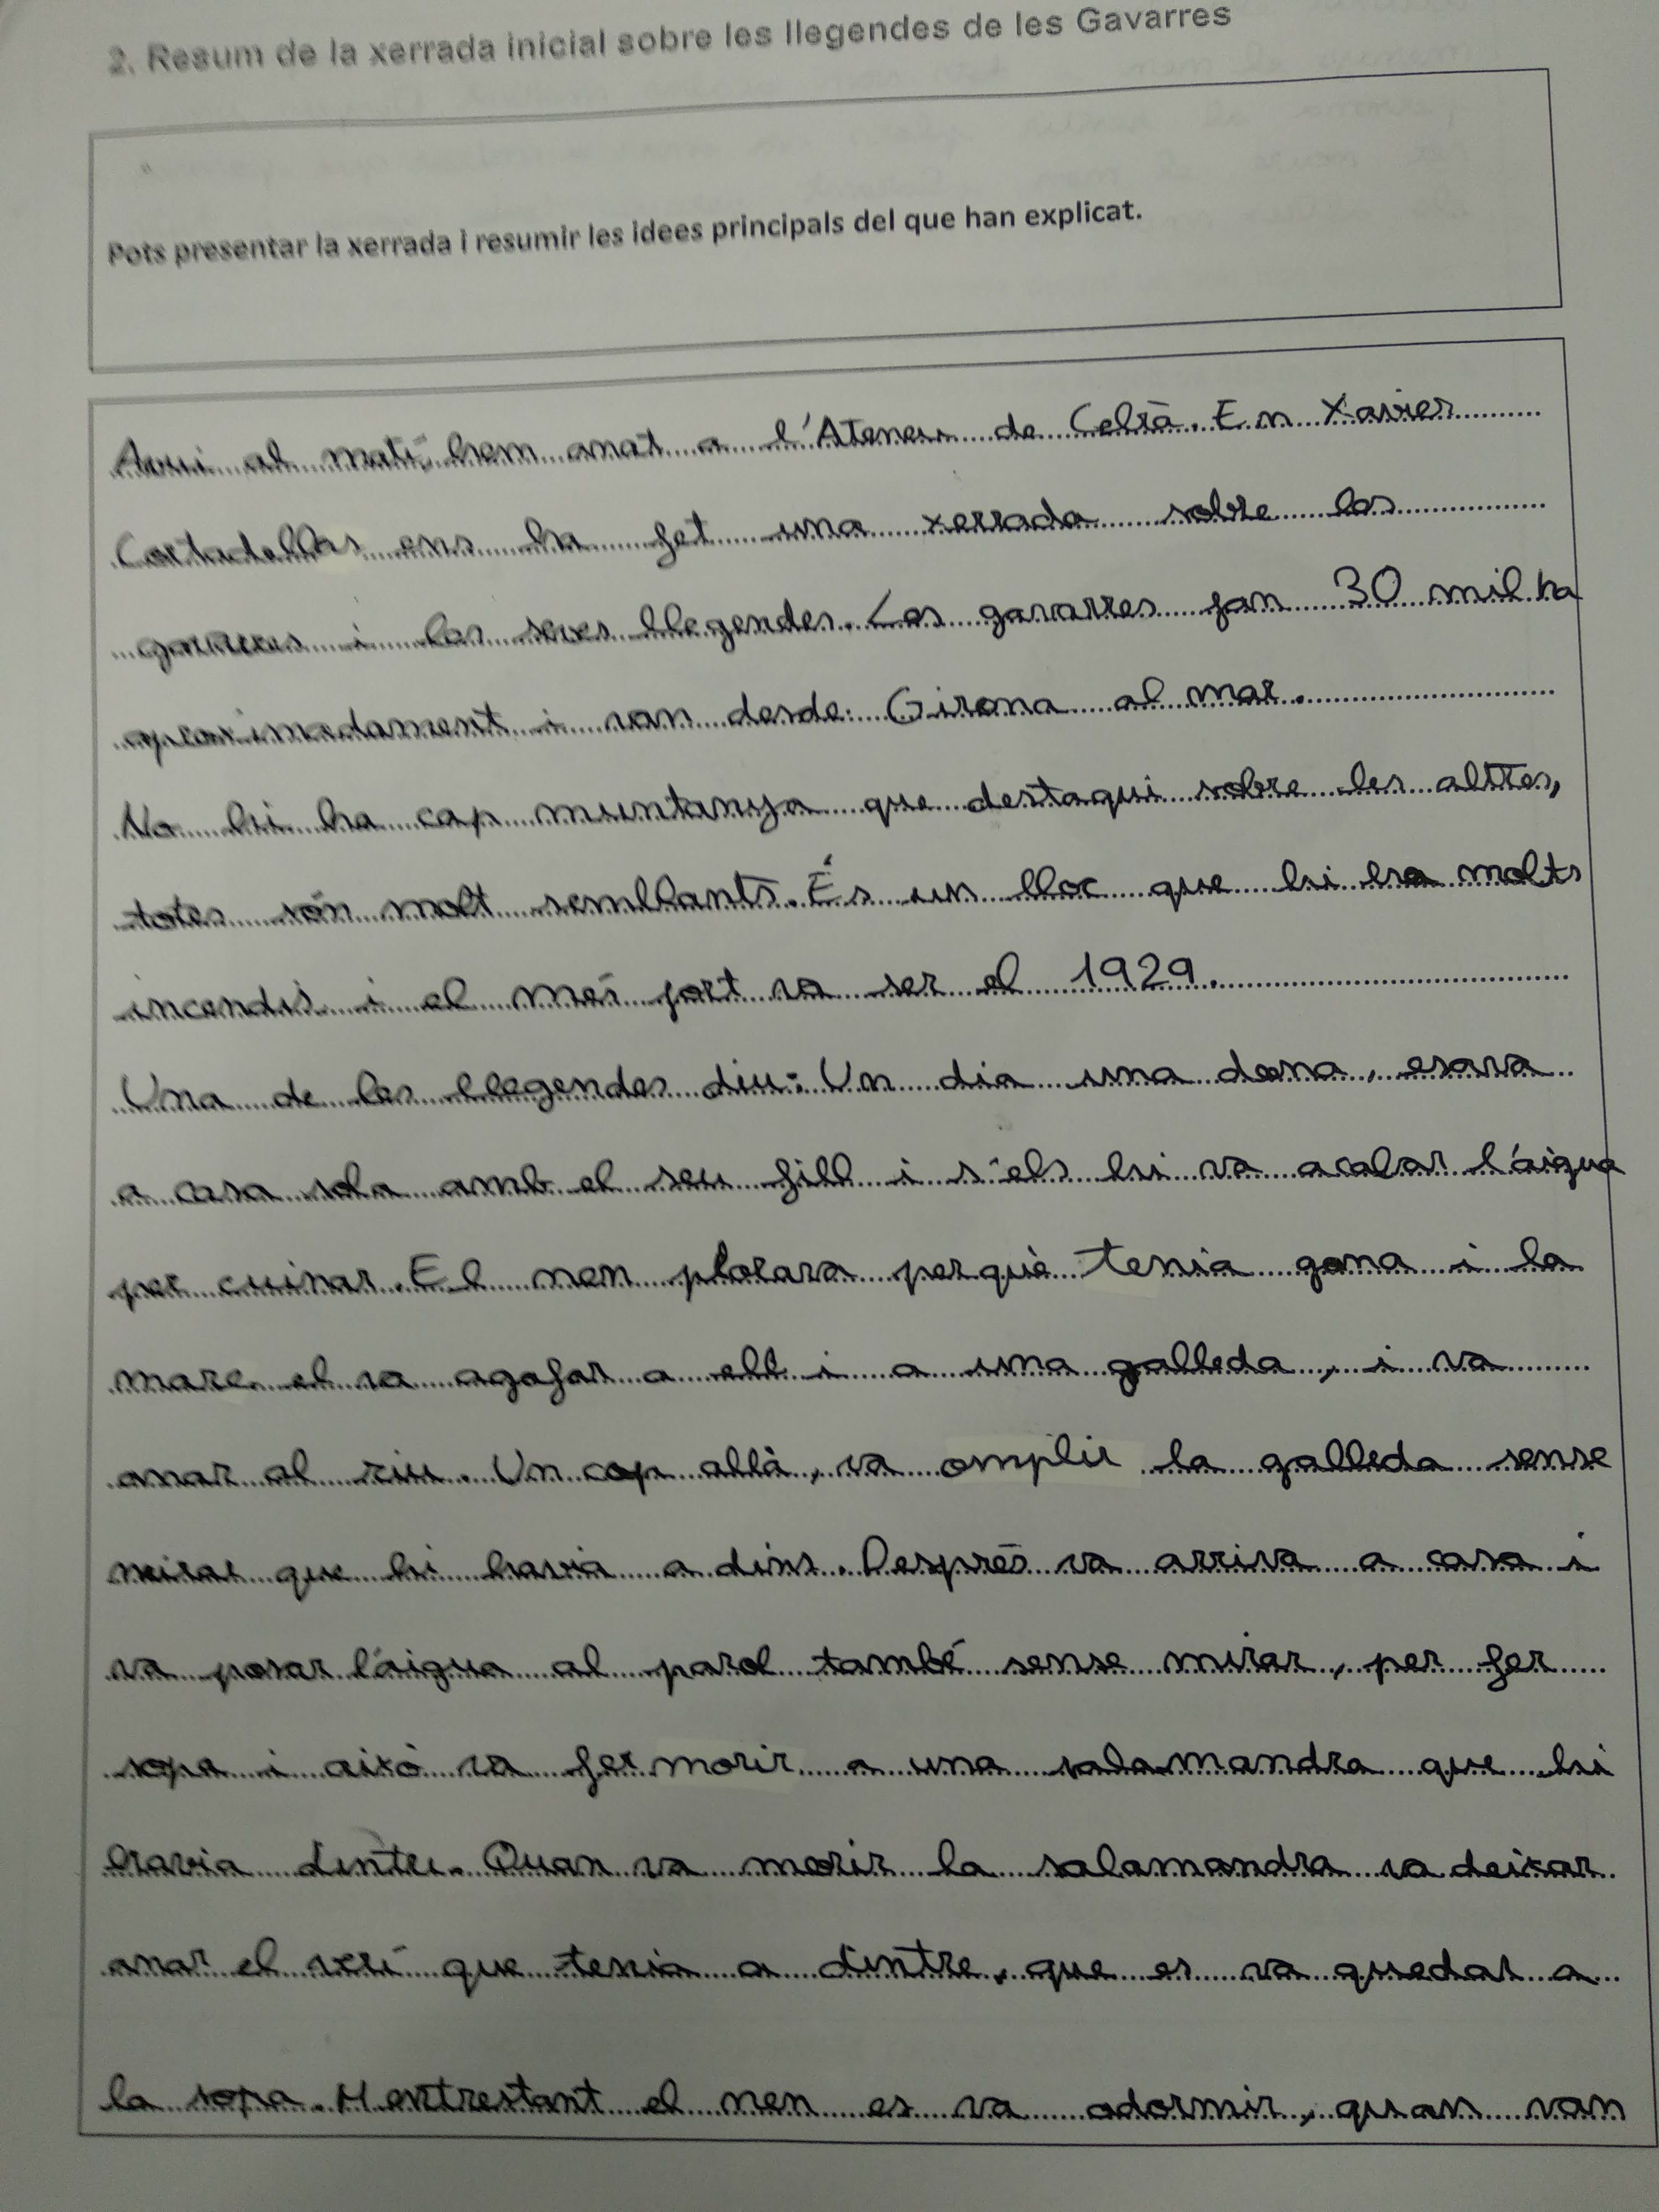 2. Resum de la xerrada inicial sobre les llegendes de les Gavarres
Pots presentar la xerrada i resumir les idees principals del que han explicat.
Avui al matí, hem anat a l'Ateneu de Celrà. En Xavier
Cortadellas ens ha fet una xerrada sobre les
gavarres i les seves llegendes. Les gavarres fan 30 mil ha
aproximadament i van desde Girona al mar.
No hi ha cap muntanya que destaqui sobre les altres,
totes són molt semblants. És un lloc que hi ha molts
incendis i el més fort va ser el 1929.
Una de les llegendes diu: Un dia una dona, esava
a casa sola amb el seu fill i s'els hi va acabar l'aigua
per cuinar. El nen plorava perquè tenia gana i la
mare el va agafar a ell i a una galleda, i va
anar al riu. Un cop allà, va omplir la galleda sense
mirar que hi havia a dins. Desprès va arriva a casa i
va posar l'aigua al parol també sense mirar, per fer
sopa i aixó va fer morir a una salamandra que hi
havia dintre. Quan va morir la salamandra va deixar
anar el verí que tenia a dintre, que es va quedar a
la sopa. Mentrestant el nen es va adormir, quan van